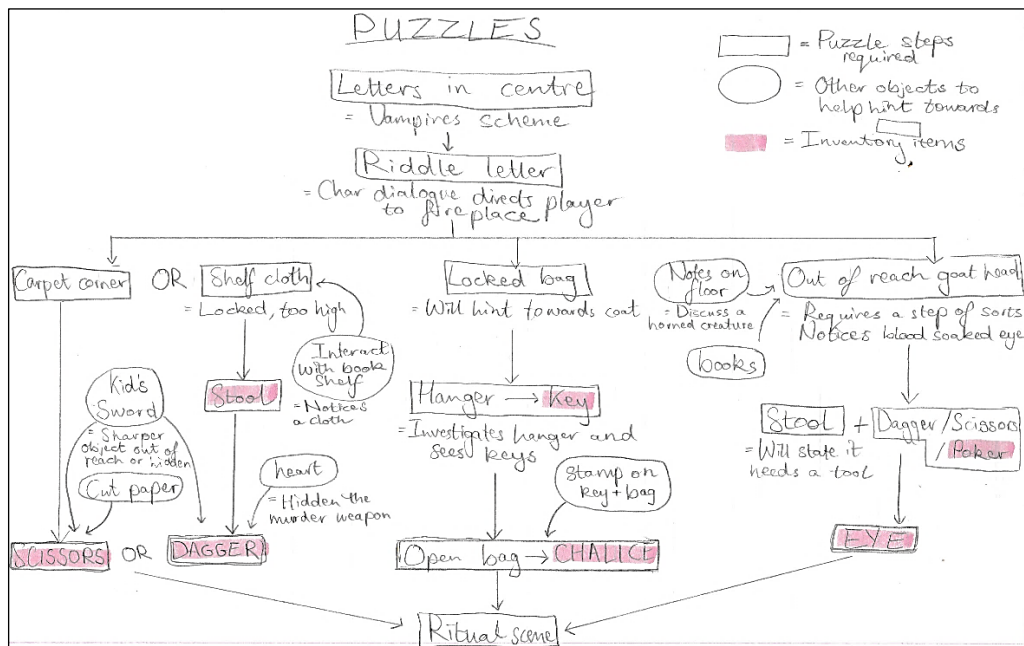 PUZZLES
= Puzzle steps
required
= Other objects to
help hint towards
= Inventory items
Letters in centre
= Vampires scheme
Riddle letter
= Char dialogue directs player
to fireplace
Carpet corner
OR
Shelf cloth
= Locked, too high
Interact
with book
shelf
= Notices
a cloth
Stool
Kid's
Sword
= Sharper
object out of
reach or hidden
Cut paper
heart
= Hidden the
murder weapon
SCISSORS OR DAGGER
Locked bag
= Will hint towards coat
Hanger → Key
= Investigates hanger and
sees keys
Stamp on
key + bag
Open bag → CHALICE
Notes on
floor
= Discuss a
horned creature
books
Out of reach goat head
= Requires a step of sorts
Notices blood soaked eye
Stool + Dagger/Scissors
/ Poker
= Will state it
needs a tool
EYE
Ritual scene